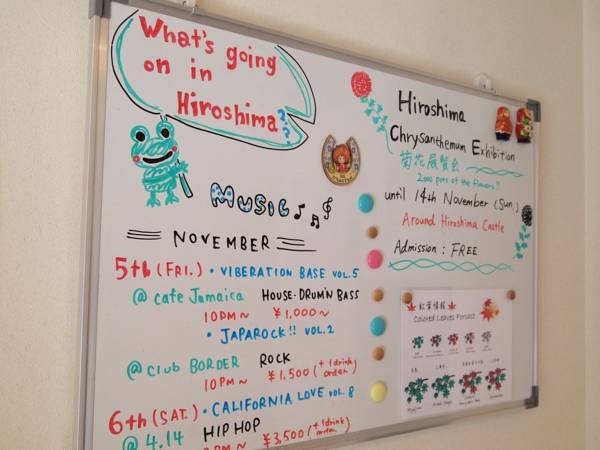 What's going
on in
Hiroshima??
MUSIC
NOVEMBER
5th (FRI.) • VIBERATION BASE VOL.5
@ cafe Jamaica HOUSE・DRUM'N BASS
10PM~ ¥1,000~
• JAPAROCK!! VOL.2
@ club BORDER ROCK
10PM~ ¥1,500 (+1drink order)
6th (SAT.) • CALIFORNIA LOVE VOL.8
@ 4.14 HIPHOP
PM~ ¥3,500 (+1drink
Hiroshima
Chrysanthemum Exhibition
菊花展覧会
2000 pots of the flowers!!
until 14th November (Sun.)
Around Hiroshima Castle
Admission : FREE
紅葉情報
Colored Leaves Forcast